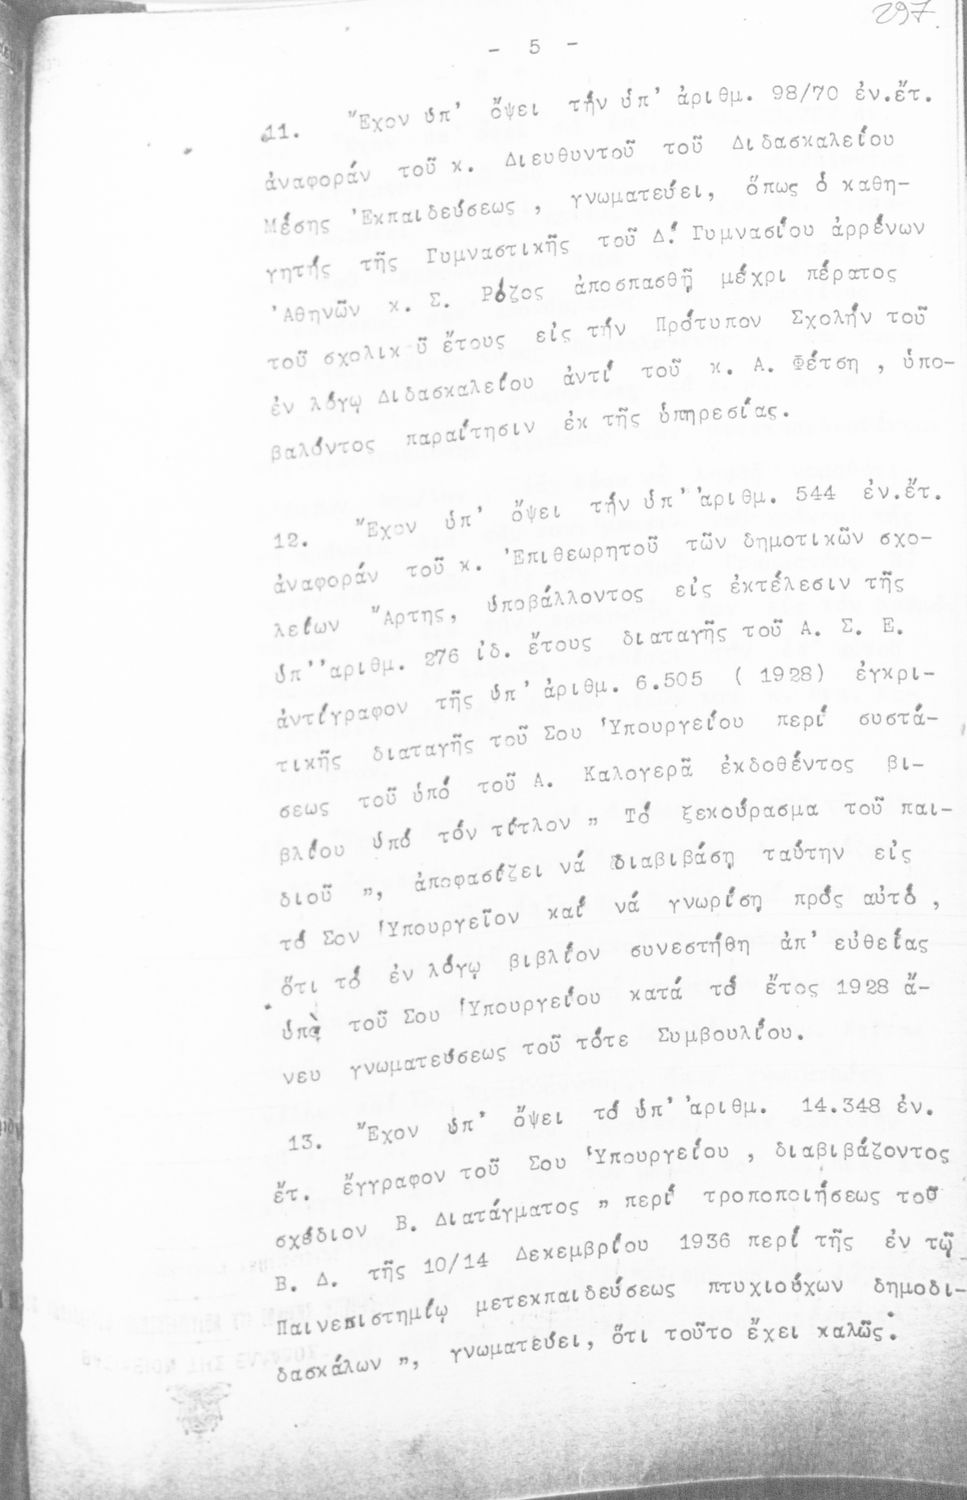 297
- 5 -
11. Ἔχον ὑπ' ὄψει τήν ὑπ' ἀριθμ. 98/70 ἐν.ἔτ.
ἀναφοράν τοῦ κ. Διευθυντοῦ τοῦ Διδασκαλείου
Μέσης Ἐκπαιδεύσεως, γνωματεύει, ὅπως ὁ καθη-
γητής τῆς Γυμναστικῆς τοῦ Δ.' Γυμνασίου ἀρρένων
Ἀθηνῶν κ. Σ. Ρόζος ἀποσπασθῇ μέχρι πέρατος
τοῦ σχολικ ῦ ἔτους εἰς τήν Πρότυπον Σχολήν τοῦ
ἐν λόγῳ Διδασκαλείου ἀντί τοῦ κ. Α. Φέτση, ὑπο-
βαλόντος παραίτησιν ἐκ τῆς ὑπηρεσίας.
12. Ἔχον ὑπ' ὄψει τήν ὑπ' ἀριθμ. 544 ἐν.ἔτ.
ἀναφοράν τοῦ κ. Ἐπιθεωρητοῦ τῶν δημοτικῶν σχο-
λείων Ἄρτης, ὑποβάλλοντος εἰς ἐκτέλεσιν τῆς
ὑπ' ἀριθμ. 276 ἰδ. ἔτους διαταγῆς τοῦ Α. Σ. Ε.
ἀντίγραφον τῆς ὑπ' ἀριθμ. 6.505 ( 1928) ἐγκρι-
τικῆς διαταγῆς τοῦ Σου Ὑπουργείου περί συστά-
σεως τοῦ ὑπό τοῦ Α. Καλογερᾶ ἐκδοθέντος βι-
βλίου ὑπό τόν τίτλον " Τό ξεκούρασμα τοῦ παι-
διοῦ ", ἀποφασίζει νά διαβιβάσῃ ταύτην εἰς
τό Σον Ὑπουργεῖον καί νά γνωρίσῃ πρός αὐτό,
ὅτι τό ἐν λόγῳ βιβλίον συνεστήθη ἀπ' εὐθείας
ὑπὸ τοῦ Σου Ὑπουργείου κατά τό ἔτος 1928 ἄ-
νευ γνωματεύσεως τοῦ τότε Συμβουλίου.
13. Ἔχον ὑπ' ὄψει τό ὑπ' ἀριθμ. 14.348 ἐν.
ἔτ. ἔγγραφον τοῦ Σου Ὑπουργείου, διαβιβάζοντος
σχέδιον Β. Διατάγματος " περί τροποποιήσεως τοῦ
Β. Δ. τῆς 10/14 Δεκεμβρίου 1936 περί τῆς ἐν τῷ
Πανεπιστημίῳ μετεκπαιδεύσεως πτυχιούχων δημοδι-
δασκάλων ", γνωματεύει, ὅτι τοῦτο ἔχει καλῶς.